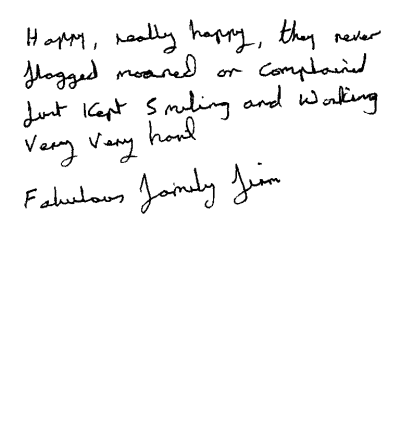 Happy, really happy, they never
flagged moaned or complained
Just Kept Smiling and Working
Very Very hard
Fabulous family firm